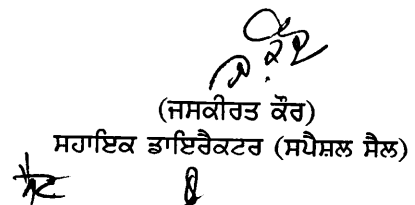 (ਜਸਕੀਰਤ ਕੌਰ)
ਸਹਾਇਕ ਡਾਇਰੈਕਟਰ (ਸਪੈਸ਼ਲ ਸੈਲ)